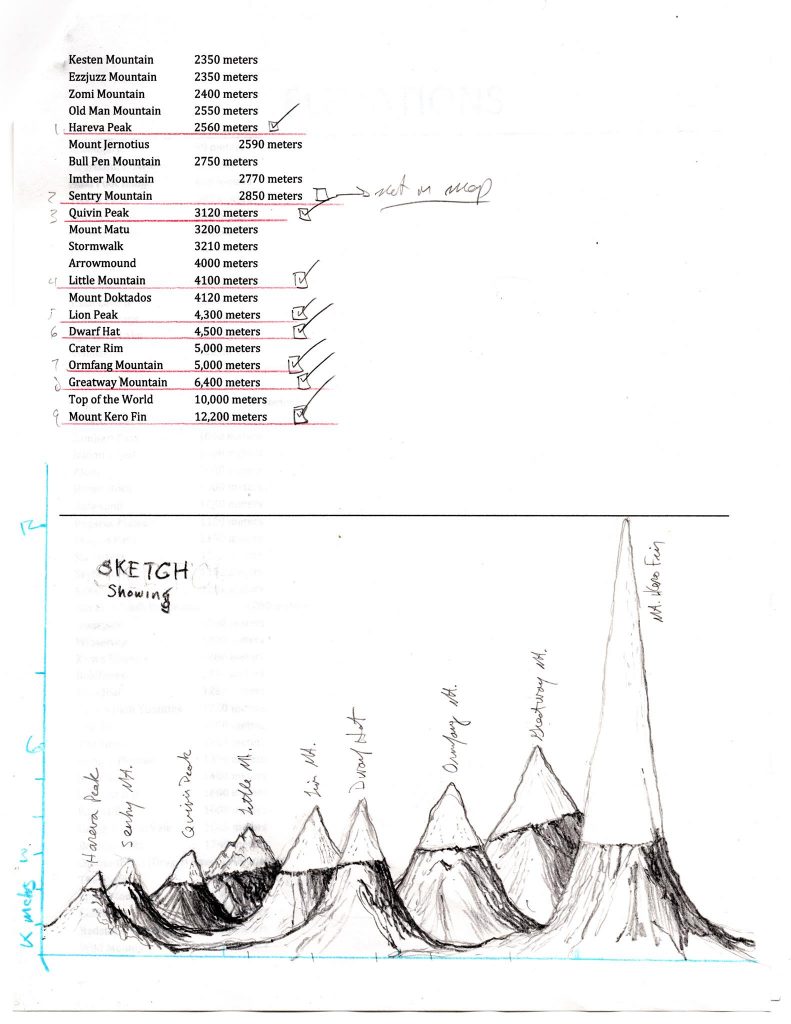 Kesten Mountain 2350 meters
Ezzjuzz Mountain 2350 meters
Zomi Mountain 2400 meters
Old Man Mountain 2550 meters
1 Hareva Peak 2560 meters
Mount Jernotius 2590 meters
Bull Pen Mountain 2750 meters
Imther Mountain 2770 meters
2 Sentry Mountain 2850 meters not on map
3 Quivin Peak 3120 meters
Mount Matu 3200 meters
Stormwalk 3210 meters
Arrowmound 4000 meters
4 Little Mountain 4100 meters
Mount Doktados 4120 meters
5 Lion Peak 4,300 meters
6 Dwarf Hat 4,500 meters
Crater Rim 5,000 meters
7 Ormfang Mountain 5,000 meters
8 Greatway Mountain 6,400 meters
Top of the World 10,000 meters
9 Mount Kero Fin 12,200 meters
12
SKETCH
Showing
Mt. Kero Fin
Greatway Mt.
6
Ormfang Mt.
Dwarf Hat
Lion Mt.
Little Mt.
Quivin Peak
Sentry Mt.
Hareva Peak
K meters